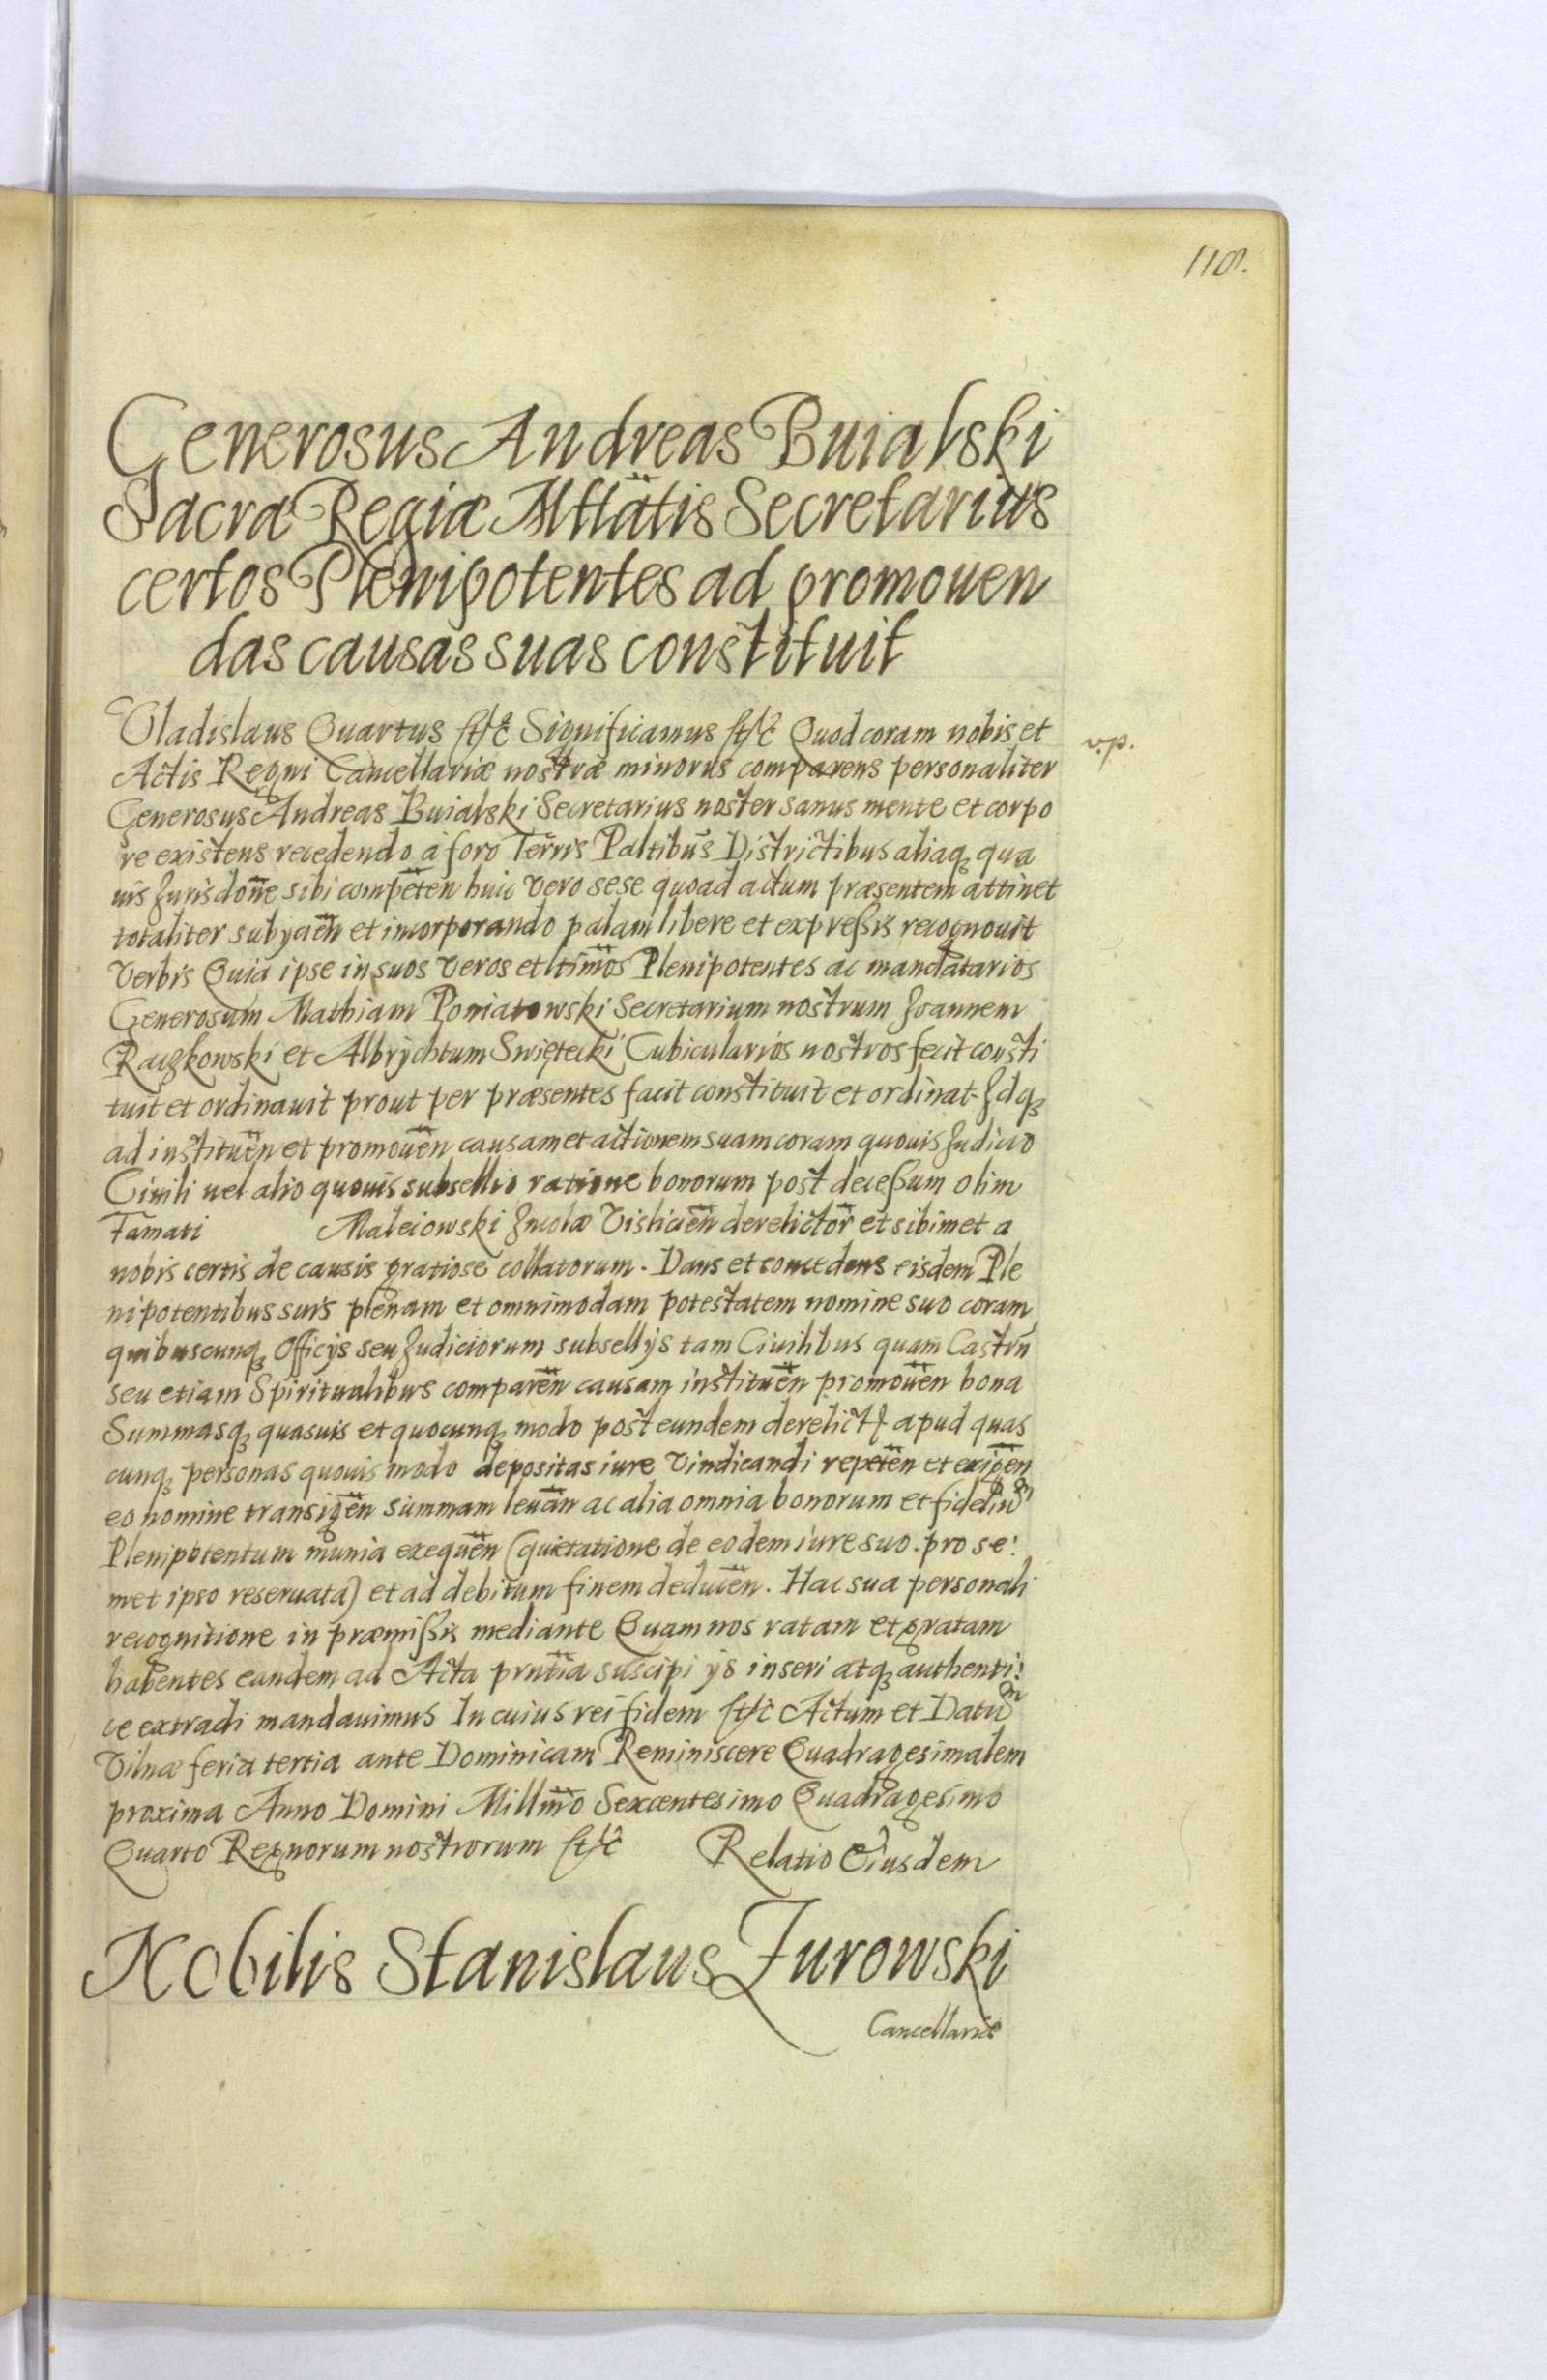 118.
Generosus Andreas Buialski
Sacræ Regiæ Mttatis Secretarius
certos Plenipotentes ad promouen
das causas suas constituit
Vladislaus Quartus etc Significamus etc Quod coram nobis et
v.p.
Actis Regni Cancellariæ nostræ minoris comparens personaliter
Generosus Andreas Buialski Secretarius noster sanus mente et corpo
re existens recedendo a foro Terris Paltibus Districtibus aliaq₃ qua
uis Jurisdone sibi competen huic vero sese quoad actum præsentem attinet
totaliter subycien et incorporando palam libere et expreßis recognouit
verbis Quia ipse in suos veros et ltimos Plenipotentes ac mandatarios
Generosum Mathiam Poniatowski Secretarium nostrum Joannem
Raczkowski et Albrychtum Swięcki Cubicularios nostros fecit consti
tuit et ordinauit prout per præsentes facit constituit et ordinat Idq₃
ad instituen et promouen causam et actionem suam coram quouis Judicio
Ciuili uel alio quouis subsellio ratione bonorum post deceßum olim
Famati Maleiowski Incolæ Vislicien derelictor et sibimet a
nobis certis de causis gratiose collatorum. Dans et concedens eisdem Ple
nipotentibus suis plenam et omnimodam potestatem nomine suo coram
quibuscunq₃ Officys seu Judiciorum subsellys tam Ciuilibus quam Castrn
seu etiam Spiritualibus comparen causam instituen promouen bona
Summasq₃ quasuis et quocunq₃ modo post eundem derelict apud quas
cunq₃ personas quouis modo depositas iure vindicandi repeten et exigen
eo nomine transigen summam leuan ac alia omnia bonorum et fideliu͂m
Plenipotentum munia exequen (quietatione de eodem iure suo pro se
met ipso reseruata) et ad debitum finem deducen. Hac sua personali
recognitione in præmißis mediante Quam nos ratam et gratam
habentes eandem ad Acta prntia suscipi ys inseri atq₃ authenti
ce extradi mandauimus In cuius rei fidem etc Actum et Datum
Vilnæ feria tertia ante Dominicam Reminiscere Quadragesimalem
proxima Anno Domini Millmo Sexcentesimo Quadragesimo
Quarto Regnorum nostrorum etc Relatio Eiusdem
Nobilis Stanislaus Zurowski
Cancellariæ